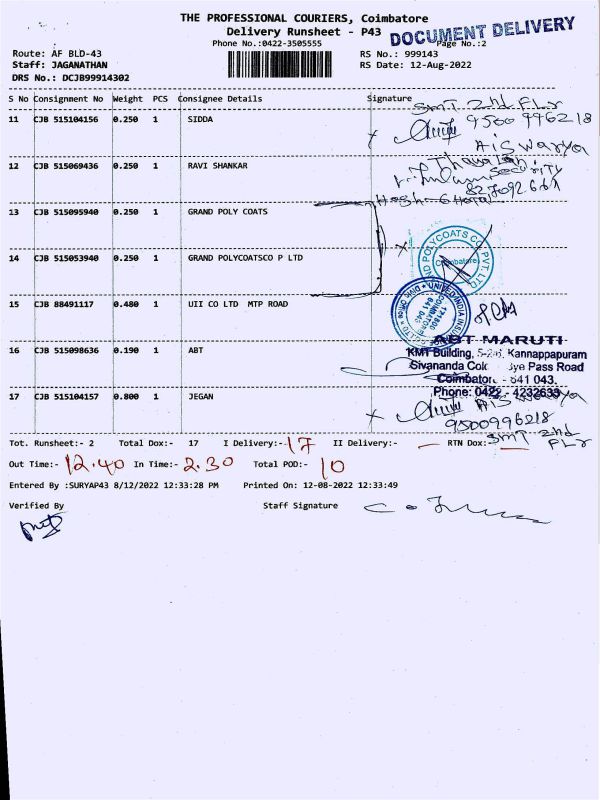 THE PROFESSIONAL COURIERS, Coimbatore
Delivery Runsheet - P43
DOCUMENT DELIVERY
Phone No.:0422-3505555
Page No.:2
Route: AF BLD-43
RS No.: 999143
Staff: JAGANATHAN
RS Date: 12-Aug-2022
DRS No.: DCJB99914302
S No Consignment No Weight PCS Consignee Details Signature
SMT 2nd FLr
11 CJB 515104156 0.250 1 SIDDA
9500996218
AISWarya
12 CJB 515069436 0.250 1 RAVI SHANKAR
Security
13 CJB 515095940 0.250 1 GRAND POLY COATS
14 CJB 515053940 0.250 1 GRAND POLYCOATSCO P LTD
POLYCOATS CO PVT. LTD
Coimbatore
15 CJB 88491117 0.480 1 UII CO LTD MTP ROAD
ABT MARUTI
16 CJB 515098636 0.190 1 ABT
KMT Building, Kannappapuram
Sivananda Bye Pass Road
Coimbatore - 641 043.
17 CJB 515104157 0.800 1 JEGAN
Phone: 0422 - 4232633
9500996218
SMT 2nd FLr
Tot. Runsheet:- 2 Total Dox:- 17 I Delivery:- 17 II Delivery:- — RTN Dox:- —
Out Time:- 12.40 In Time:- 2.30 Total POD:- 10
Entered By :SURYAP43 8/12/2022 12:33:28 PM Printed On: 12-08-2022 12:33:49
Verified By Staff Signature